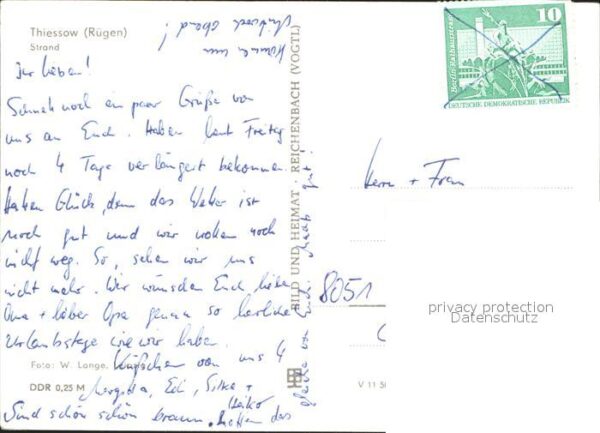 Thiessow (Rügen)
Strand
Kommen am
abend!
Ihr Lieben!
Schnell noch ein paar Grüße von
uns an Euch. Haben laut Freitag
noch 4 Tage verlängert bekommen.
Haben Glück, denn das Wetter ist
noch gut und wir wollen noch
nicht weg. So, sehen wir uns
nicht mehr. Wir wünschen Euch liebe
Oma + lieber Opa genau so herrliche
Urlaubstage wie wir haben.
Foto: W. Lange,
Küßchen von uns 4
DDR 0,25 M
Edi, Silke +
Heiko
Sind schön schön braun. Hatten das
gleiche von Euch. Macht gut!
BILD UND HEIMAT · REICHENBACH (VOGTL)
V 11 50
10
Berlin-Rathausstraße
DEUTSCHE DEMOKRATISCHE REPUBLIK
Herrn + Frau
8051
privacy protection
Datenschutz